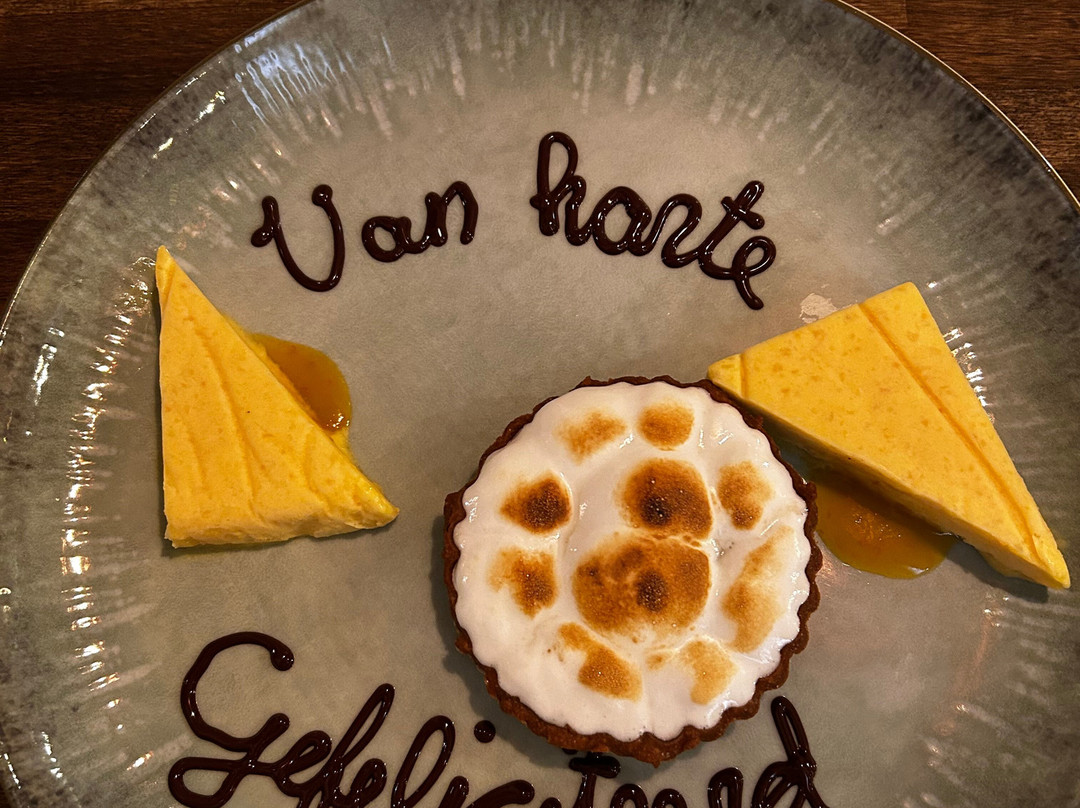 Van harte
Gefeliciteerd